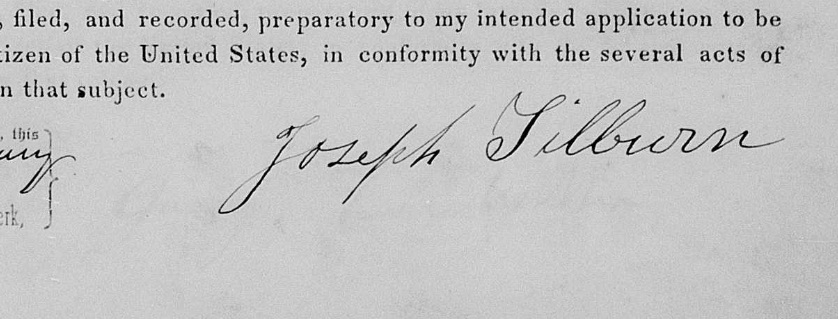 , filed, and recorded, preparatory to my intended application to be
tizen of the United States, in conformity with the several acts of
n that subject.
, this
Joseph Tilburn
erk,